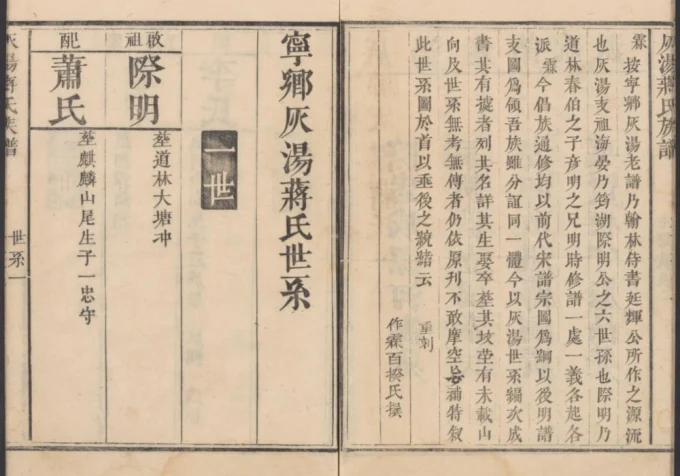 灰湯蔣氏族譜
霖按宁鄉灰湯老譜乃翰林侍書延輝公所作之源流
也灰湯支祖海晏乃筠湖際明公之六世孫也際明乃
道林春伯之子彦明之兄明時修譜一處一義各起各
派霖今倡族通修均以前代宋譜宗圖爲綱以後明譜
支圖爲領吾族雖分誼同一體今以灰湯世系編次成
書其有據者列其名詳其生娶卒塟其坟塋有未載山
向及世系無考無傳者仍依原刋不敢摩空妄補特叙
此世系圖於首以垂後之覽諸云
重刻
作霖百揆氏撰
寧鄉灰湯蔣氏世系
一世
啟祖
際明
塟道林大塘冲
配
蕭氏
塟麒麟山尾生子一忠守
灰湯蔣氏族譜
世系一